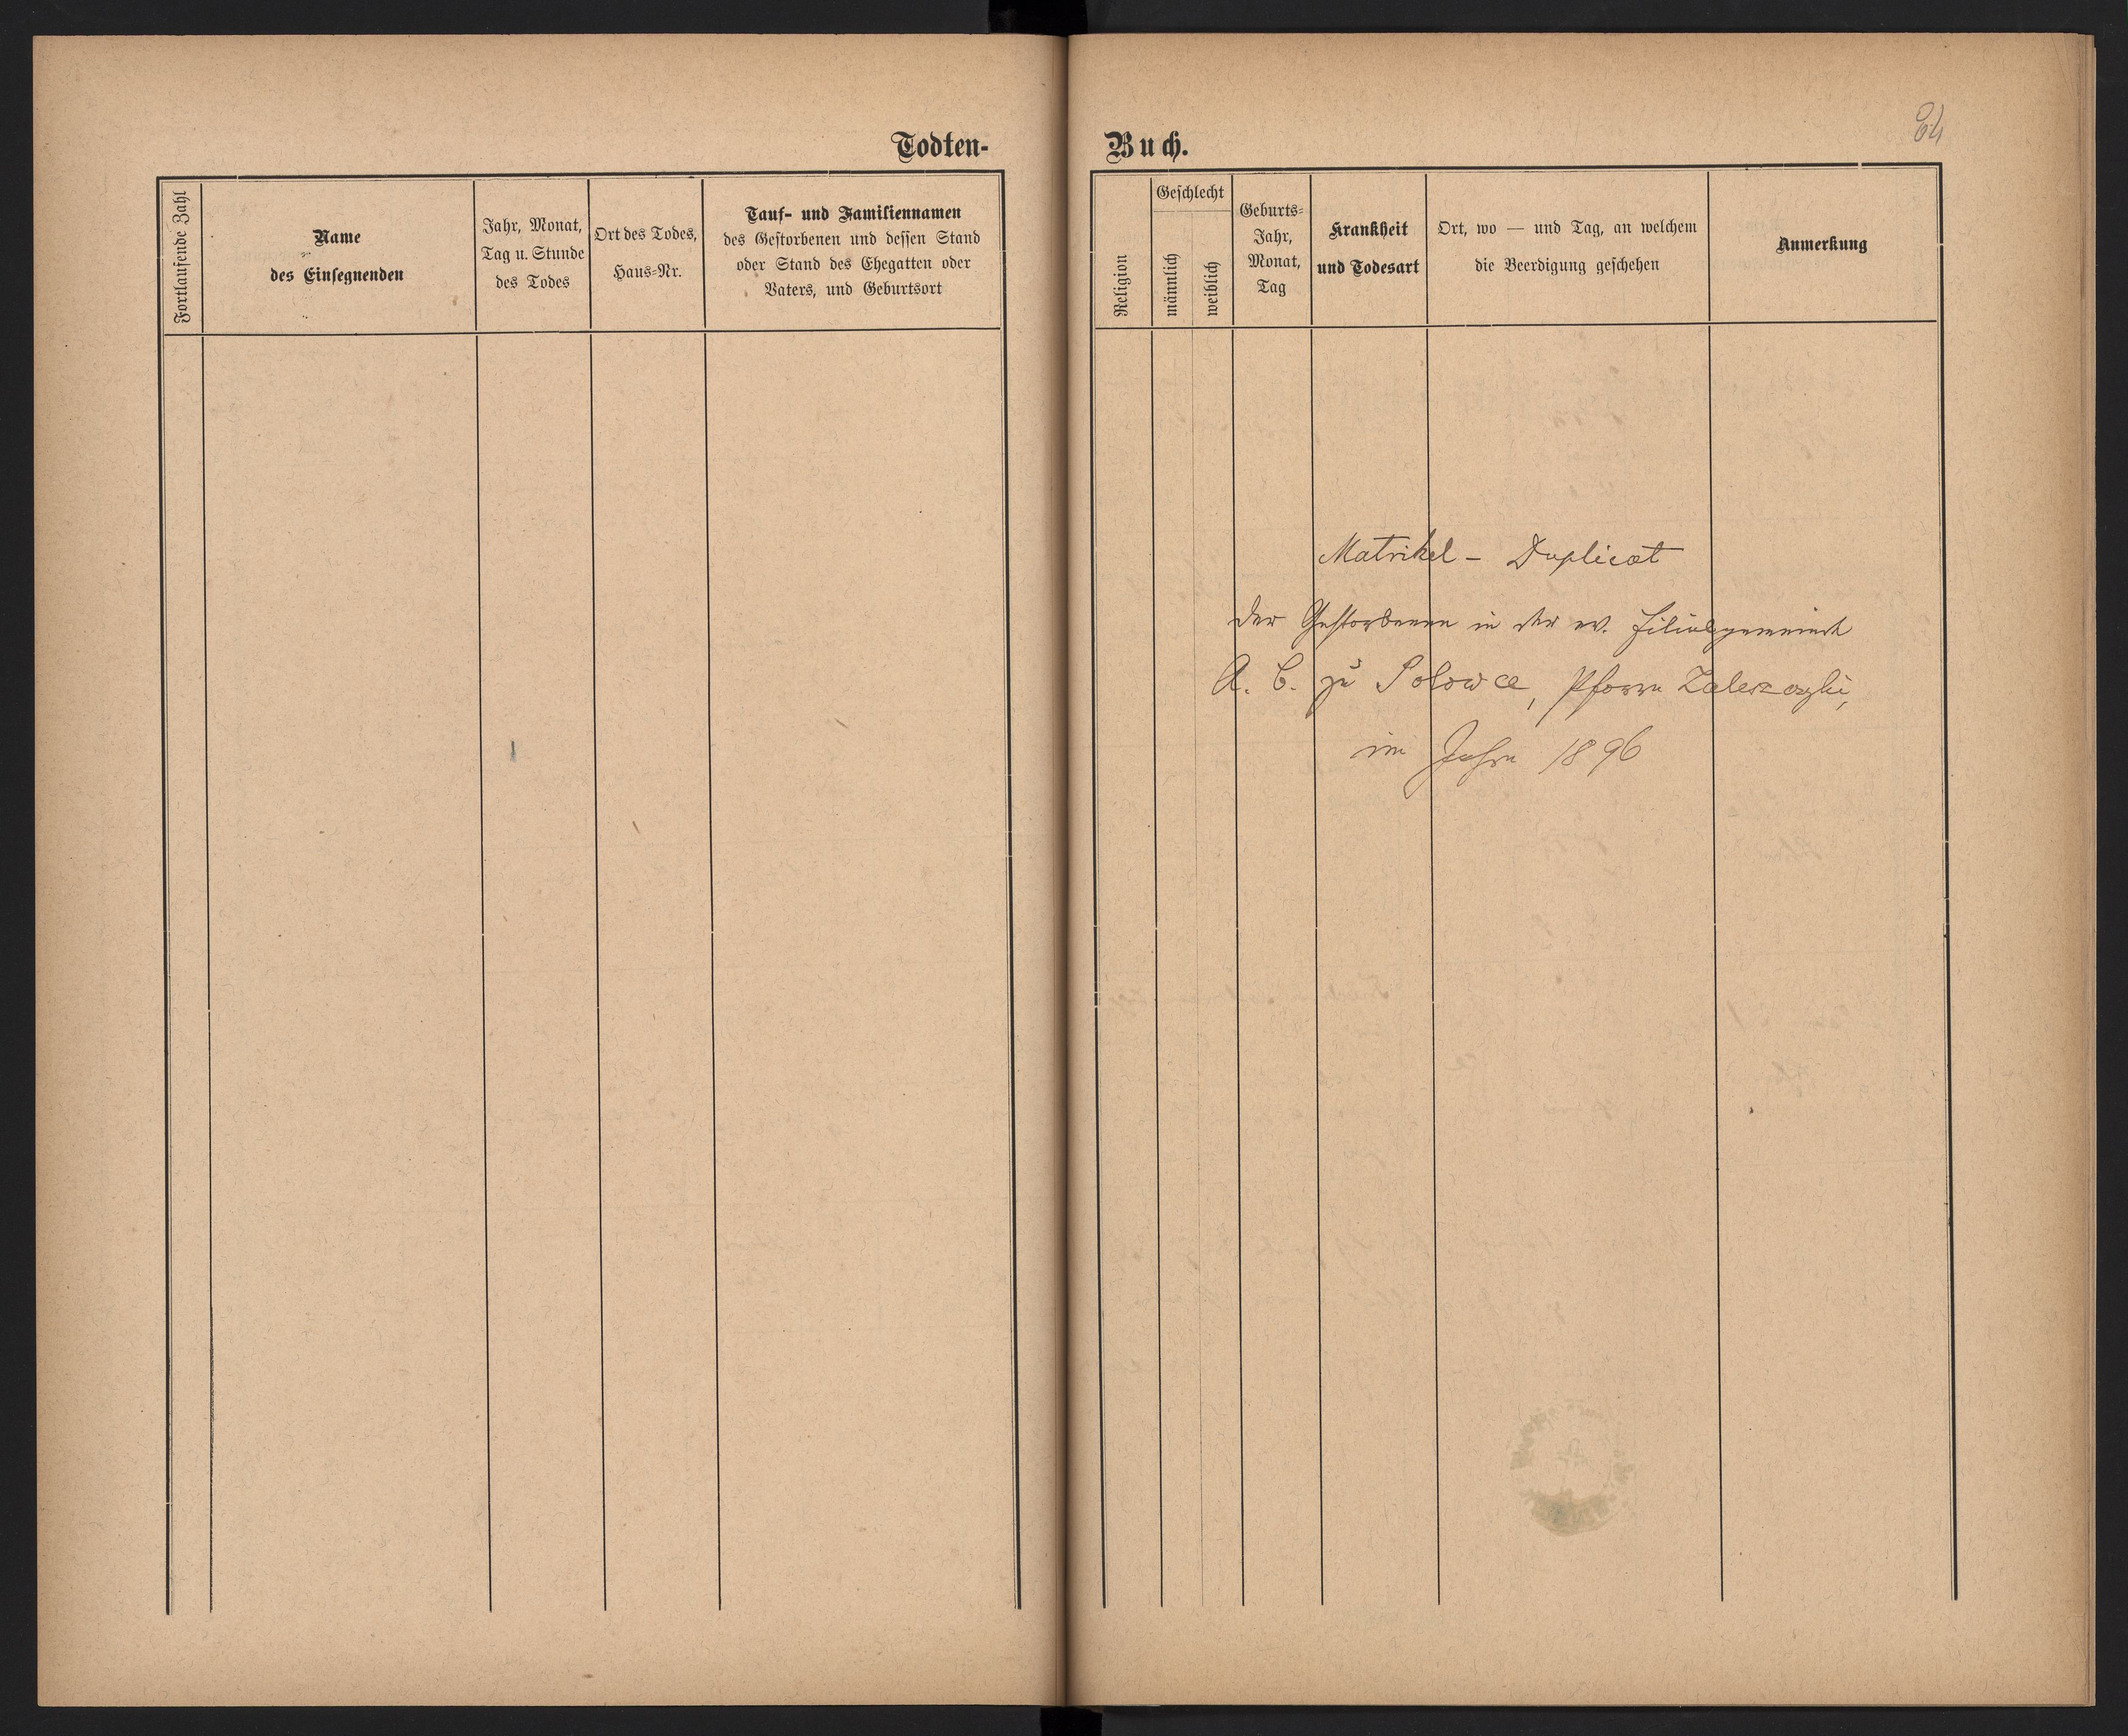 Todten-
Fortlaufende Zahl
Name
des Einsegnenden
Jahr, Monat,
Tag u. Stunde
des Todes
Ort des Todes,
Haus-Nr.
Tauf- und Familiennamen
des Gestorbenen und dessen Stand
oder Stand des Ehegatten oder
Vaters, und Geburtsort
64
Buch.
Religion
Geschlecht
männlich
weiblich
Geburts-
Jahr,
Monat,
Tag
Krankheit
und Todesart
Ort, wo — und Tag, an welchem
die Beerdigung geschehen
Anmerkung
Matrikel - Duplicat
der Gestorbenen in der ev. Filialgemeinde
A. C. zu Polowce, Pfarre Zaleszczyki,
im Jahre 1896